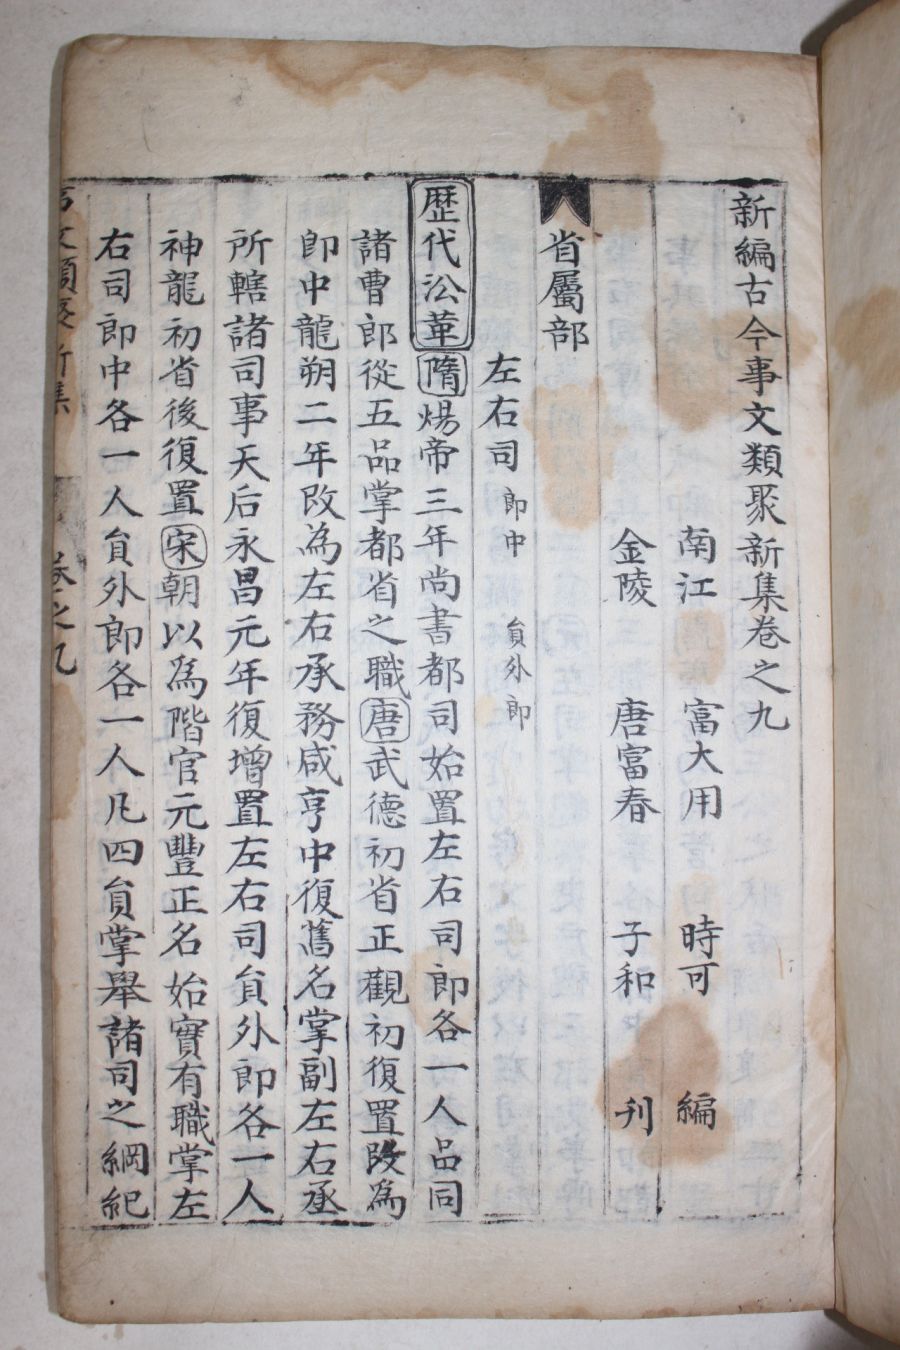 新編古今事文類聚新集卷之九
南江 富大用 時可 編
金陵 唐富春 子和 刊
省屬部
左右司 郎中 員外郎
歷代沿革 隋煬帝三年尚書都司始置左右司郎各一人品同
諸曹郎從五品掌都省之職唐武德初省正觀初復置改為
郎中龍朔二年改為左右承務咸亨中復舊名掌副左右丞
所轄諸司事天后永昌元年復增置左右司員外郎各一人
神龍初省後復置宋朝以為階官元豐正名始實有職掌左
右司郎中各一人員外郎各一人凡四員掌舉諸司之綱紀
事文類聚新集 卷之九